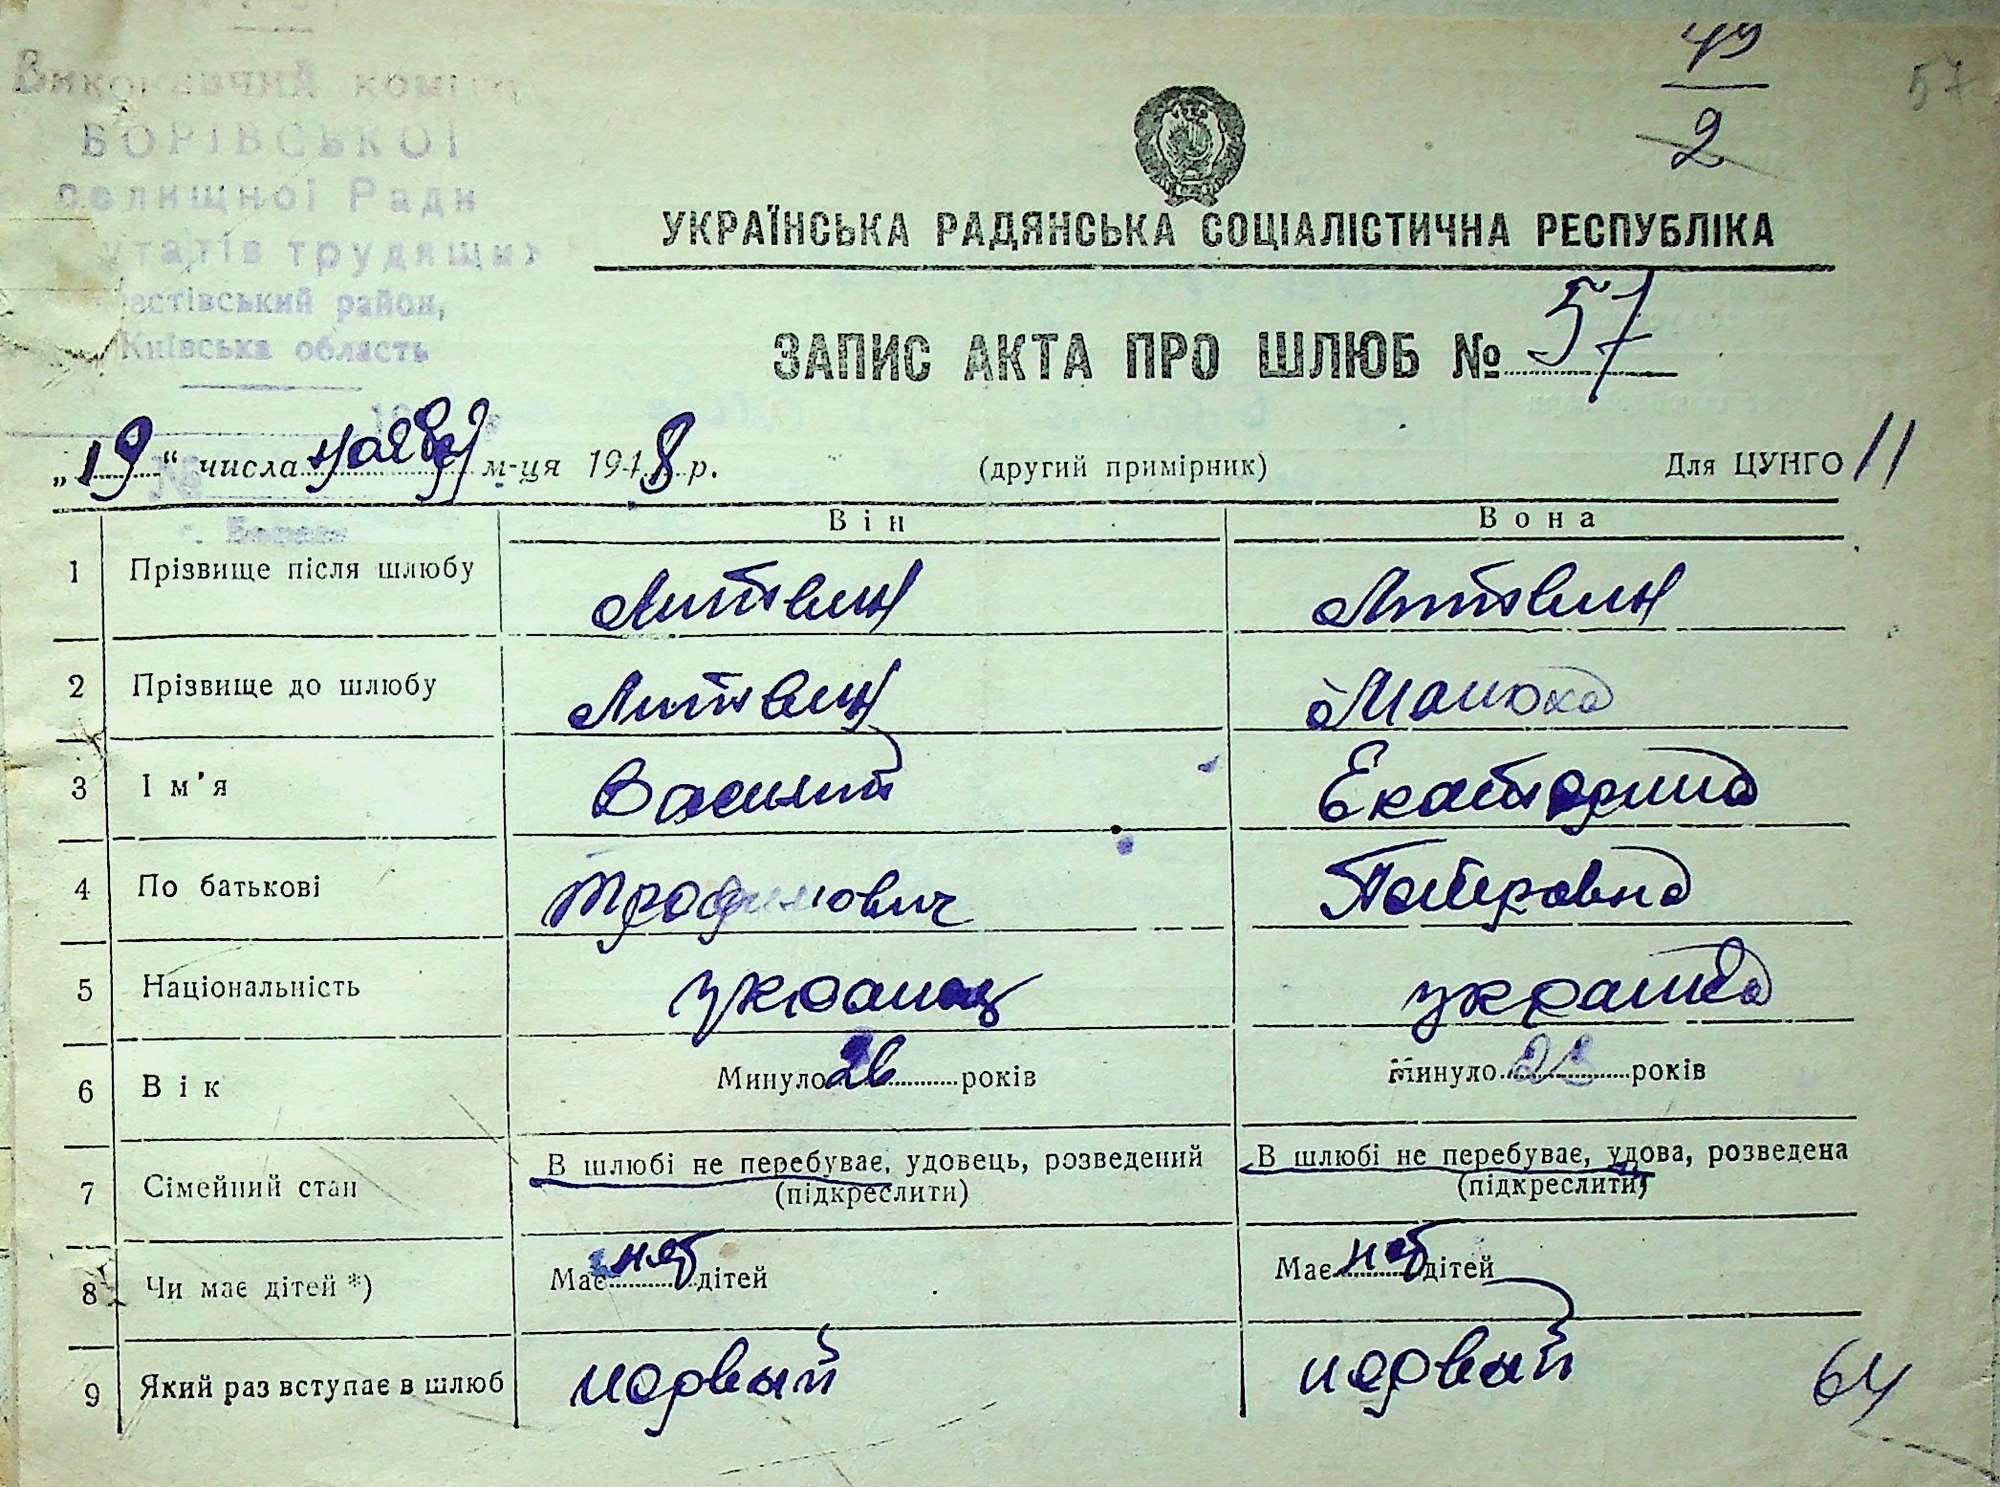 Виконавчий коміт
БОРІВСЬКОЇ
селищної Ради
утатів трудящих
астівський район,
Київська область
49
2
57
УКРАЇНСЬКА РАДЯНСЬКА СОЦІАЛІСТИЧНА РЕСПУБЛІКА
ЗАПИС АКТА ПРО ШЛЮБ № 57
„19“ числа ноября м-ця 1948 р. (другий примірник) Для ЦУНГО 11
Він Вона
1 Прізвище після шлюбу Литвин Литвин
2 Прізвище до шлюбу Литвин Манюка
3 Ім'я Василий Екатерина
4 По батькові Трофимович Петровна
5 Національність украинец украинка
6 Вік Минуло 26 років Минуло 23 років
7 Сімейний стан В шлюбі не перебуває, удовець, розведений (підкреслити) В шлюбі не перебуває, удова, розведена (підкреслити)
8 Чи має дітей *) Має нет дітей Має нет дітей
9 Який раз вступає в шлюб первый первый
64